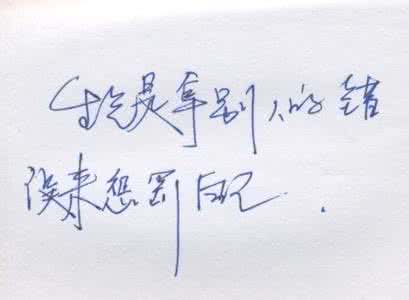 生气是拿别人的错
误来惩罚自己.